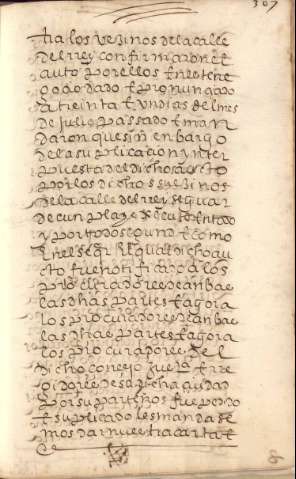 307
tra los vezinos de la calle
del rey confirmaron el
auto por ellos en este ne
goçio dado e pronunçiado
a treinta e un dias del mes
de julio passado e man
daron que sin enbargo
de la suplicaçion ynter
puesta del dicho aucto
por los dichos vezinos
de la calle del rey se guar
de cunpla y execute en todo
y por todo segund e como
en el se qual dicho au
cto fue notificado a los
procuradores de anbas
las dhas partes e agora
los procuradores de anbas
las dhas partes e agora
los procuradores del
dicho conçejo e re
gidores desa dicha çiudad
por su parte nos fue pedido
e suplicado les manda se
mos dar nuestra carta e